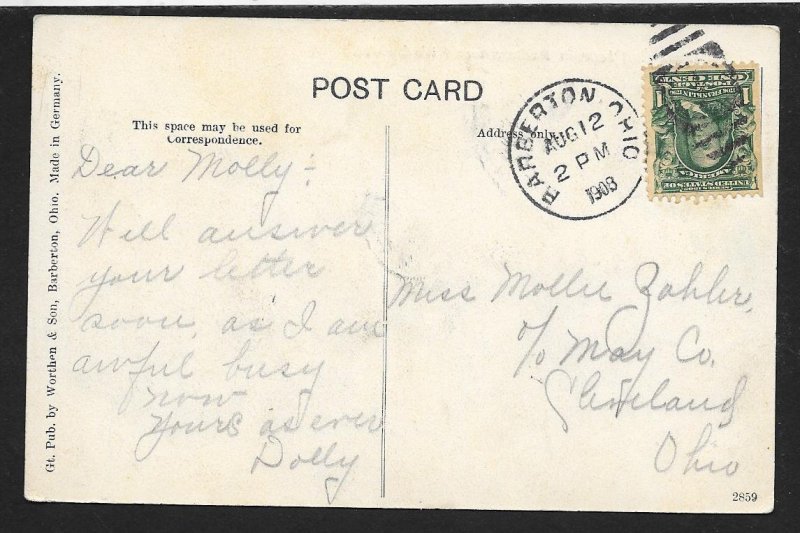 POST CARD
This space may be used for
Correspondence.
Address only.
BARBERTON, OHIO
AUG 12
2 PM
1908
ONE CENT 1
POSTAGE
UNITED STATES OF
AMERICA
Dear Molly:-
Will answer
your letter
soon, as I am
awful busy
now
Yours as ever
Dolly
Miss Mollie Zahler,
c/o May Co.
Cleveland
Ohio
Gt. Pub. by Worthen & Son, Barberton, Ohio. Made in Germany.
2859